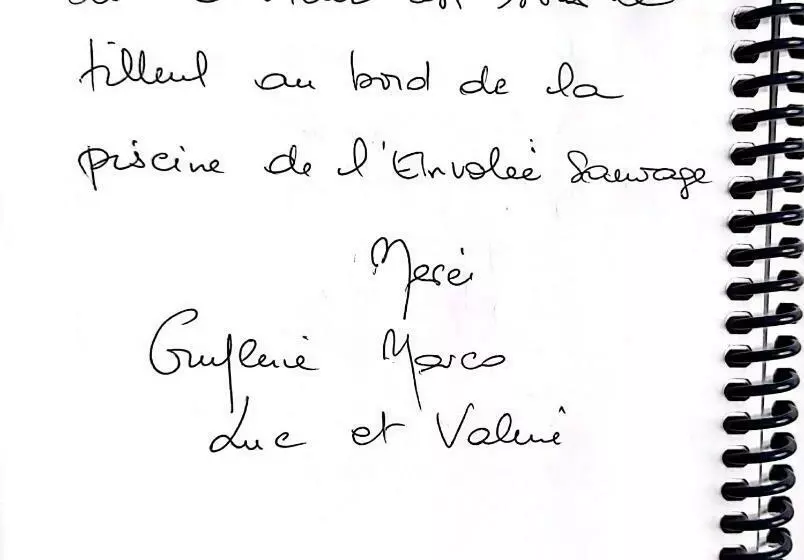 tilleul au bord de la
piscine de l'Envolée Sauvage
Merci
Guylene Marco
Luc et Valérie